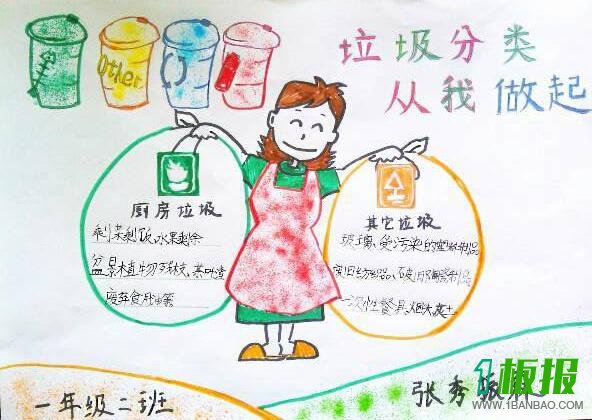 Other
垃圾分类
从我做起
厨房垃圾
剩菜剩饭、水果剩余
盆景植物残枝、茶叶渣
废弃食用油等
其它垃圾
玻璃、受污染的塑料制品
废旧纺织品、破旧陶瓷制品
一次性餐具、烟头、灰土
一年级二班
张秀
板报
WWW.1BANBAO.COM